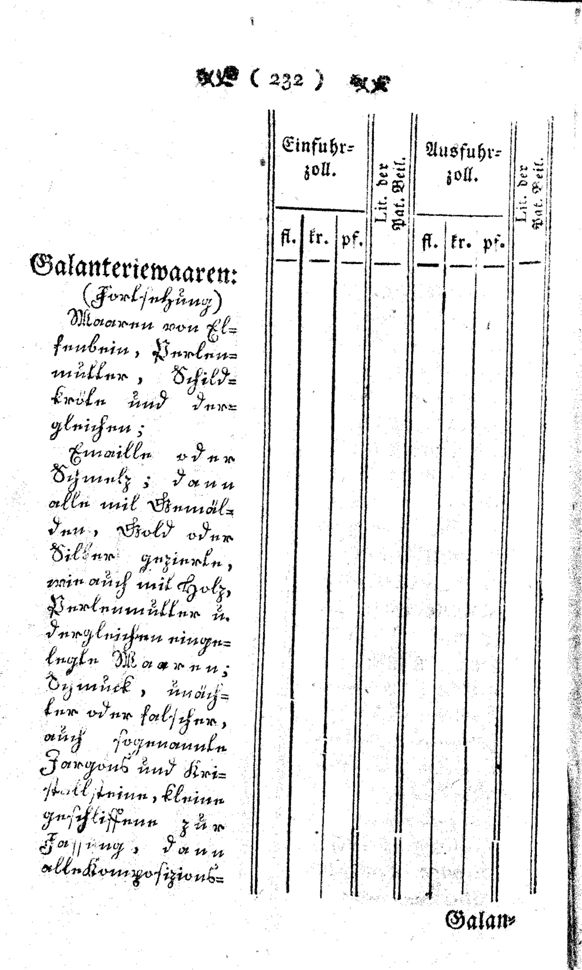 ( 232 )
Einfuhr=
zoll.
Lit. der
Pat. Beil.
Ausfuhr=
zoll.
Lit. der
Pat. Beil.
fl. kr. pf. fl. kr. pf.
Galanteriewaaren:
(Fortsetzung)
Waaren von El=
fenbein, Perlen=
mutter, Schild=
kröte und der=
gleichen;
Emaille oder
Schmelz; dann
alle mit Gemäl=
den, Gold oder
Silber gezierte,
wie auch mit Holz,
Perlenmutter u.
dergleichen einge=
legte Waaren;
Schmuck, unäch=
ter oder falscher,
auch sogenannte
Jargons und Kri=
stallsteine, kleine
geschliffene zur
Fassung, dann
alle Komposizions=
Galan=